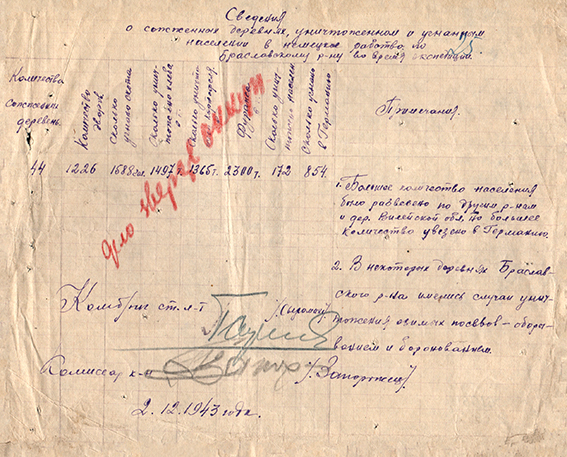 Сведения
о сожженных деревнях, уничтоженном и угнанном
населении в немецкое рабство, по
Браславскому р-ну во время экспедиции.
Количество сожженных деревень
Количество дворов
Сколько угнано скота
Сколько унич-тожено хлеба
Сколько уничто-
Фуража
Сколько унич-тожено населен.
Сколько угнано в Германию
Примечания.
44 1226 1588 1497 т. 1365 т. 2300 т. 172 854
1. Большое количество населения
было развезено по другим р-нам
и дер. Вилейской обл., но большее
количество увезено в Германию
2. В некоторых деревнях Браслав-
ского р-на имелись случаи унич-
тожения озимых посевов – обора-
ванием и боронованием.
Комбриг ст. л-т
Комиссар к-н
2.12.1943 года.
дело